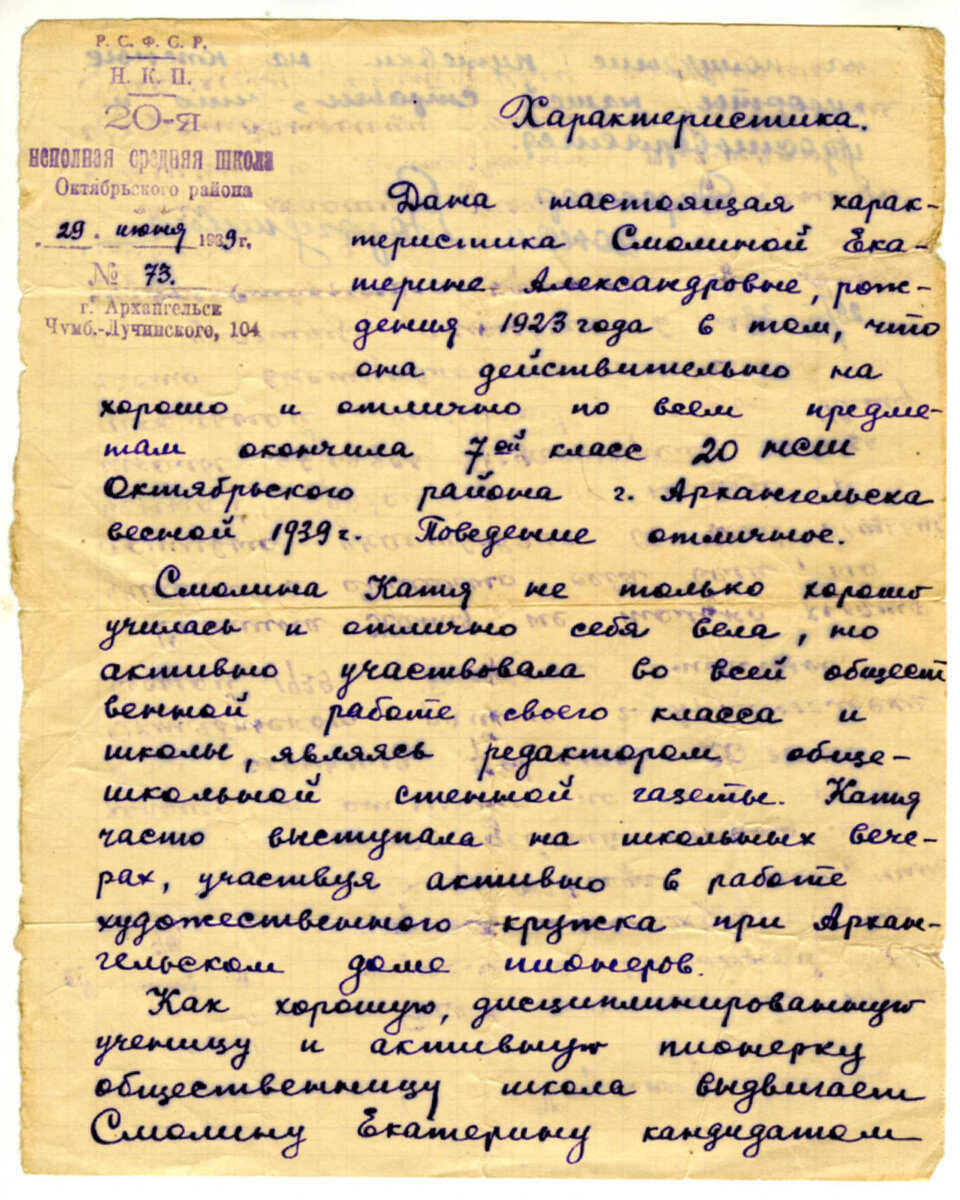 Р. С. Ф. С. Р.
Н. К. П.
20-я
неполная средняя школа
Октябрьского района
29. июня 1939г.
№ 73.
г. Архангельск
Чумб.-Лучинского, 104
Характеристика.
Дана настоящая харак-
теристика Смолиной Ека-
терине Александровне, рож-
дения 1923 года в том, что
она действительно на
хорошо и отлично по всем предме-
там окончила 7ой класс 20 нсш
Октябрьского района г. Архангельска
весной 1939 г. Поведение отличное.
Смолина Катя не только хорошо
училась и отлично себя вела, но
активно участвовала во всей общест
венной работе своего класса и
школы, являясь редактором обще-
школьной стенной газеты. Катя
часто выступала на школьных вече-
рах, участвуя активно в работе
художественного кружка при Архан-
гельском доме пионеров.
Как хорошую, дисциплинированную
ученицу и активную пионерку
общественницу школа выдвигает
Смолину Екатерину кандидатом